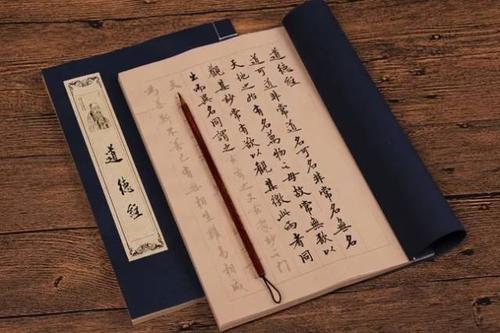 道德經
道可道非常道名可名非常名無名
天地之始有名萬物之母故常無欲以
觀其妙常有欲以觀其徼此兩者同
出而異名同謂之玄之又玄妙之門
天
為善斯不善已有無相生難易相成
道德經